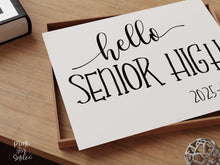 hello
SENIOR HIGH
2025-